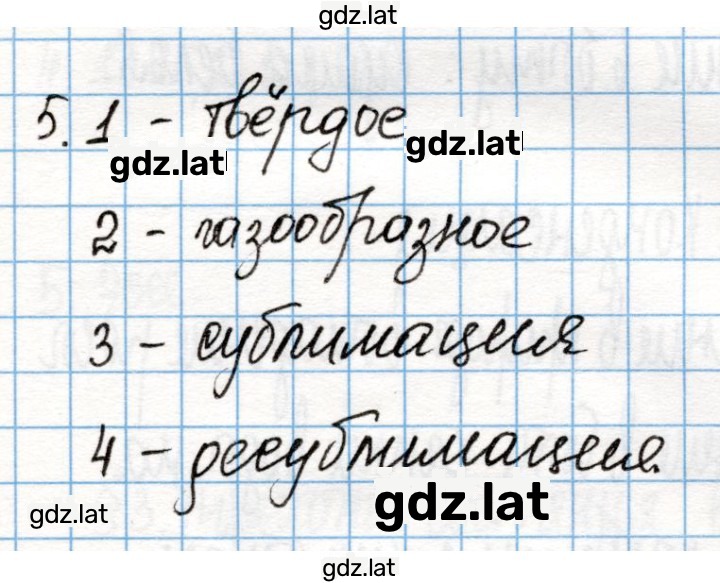 gdz.lat
5. 1 - твёрдое
gdz.lat gdz.lat
2 - газообразное
3 - сублимация
4 - десублимация.
gdz.lat gdz.lat
gdz.lat